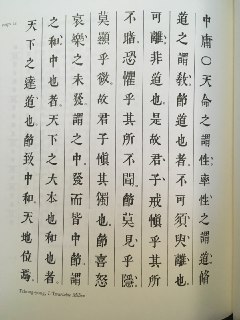 中庸○天命之謂性率性之謂道脩
道之謂教節道也者不可須臾離也
可離非道也是故君子戒慎乎其所
不睹恐懼乎其所不聞節莫見乎隱
莫顯乎微故君子慎其獨也節喜怒
哀樂之未發謂之中發而皆中節謂
之和中也者天下之大本也和也者
天下之達道也節致中和天地位焉
Tchoung-young, l'Invariable Milieu